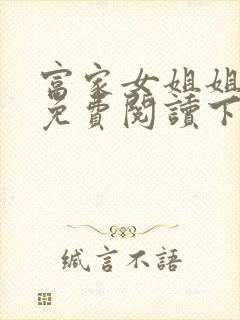 富家女姐姐
免費閱讀下
緘言不語